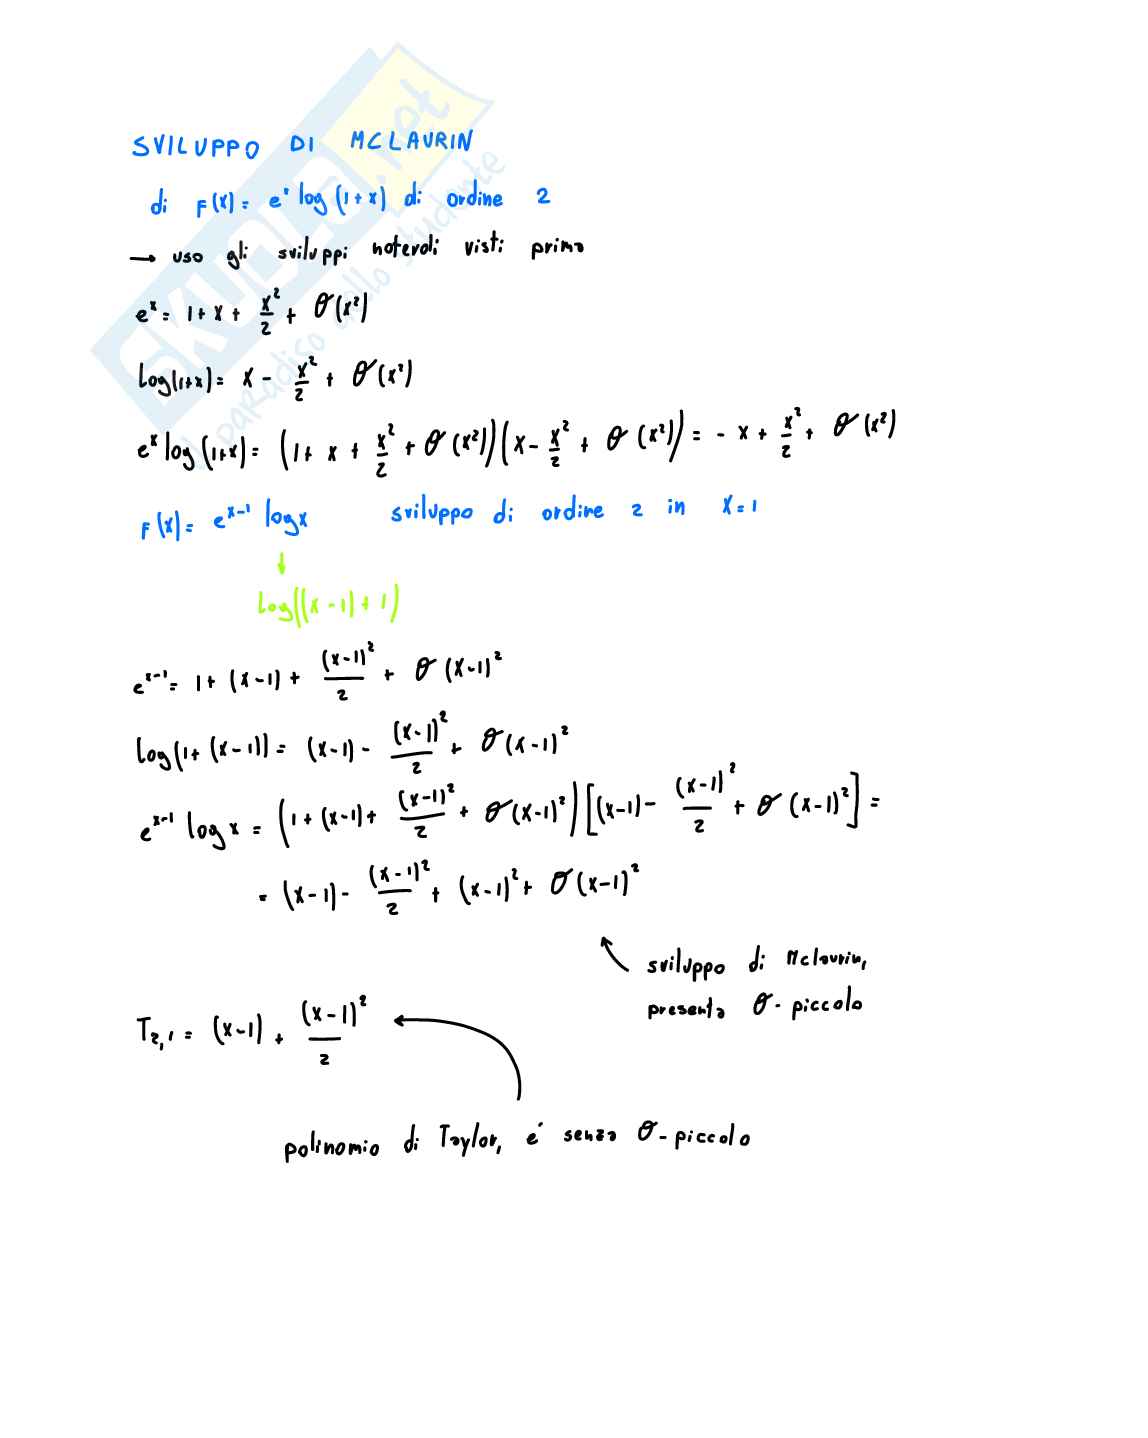 SVILUPPO DI MCLAURIN
di F(x) = eˣ log (1+x) di ordine 2
→ uso gli sviluppi notevoli visti prima
eˣ = 1 + x + x²/2 + σ(x²)
log(1+x) = x - x²/2 + σ(x²)
eˣ log(1+x) = (1 + x + x²/2 + σ(x²))(x - x²/2 + σ(x²)) = - x + x²/2 + σ(x²)
F(x) = eˣ⁻¹ log x sviluppo di ordine 2 in x = 1
↓
log((x-1)+1)
eˣ⁻¹ = 1 + (x-1) + (x-1)²/2 + σ(x-1)²
log(1+(x-1)) = (x-1) - (x-1)²/2 + σ(x-1)²
eˣ⁻¹ log x = (1 + (x-1) + (x-1)²/2 + σ(x-1)²)[(x-1) - (x-1)²/2 + σ(x-1)²] =
= (x-1) - (x-1)²/2 + (x-1)² + σ(x-1)²
sviluppo di Mclaurin,
presenta σ-piccolo
T₂,₁ = (x-1) + (x-1)²/2
polinomio di Taylor, e' senza σ-piccolo
SKUOLA.net
il paradiso dello studente